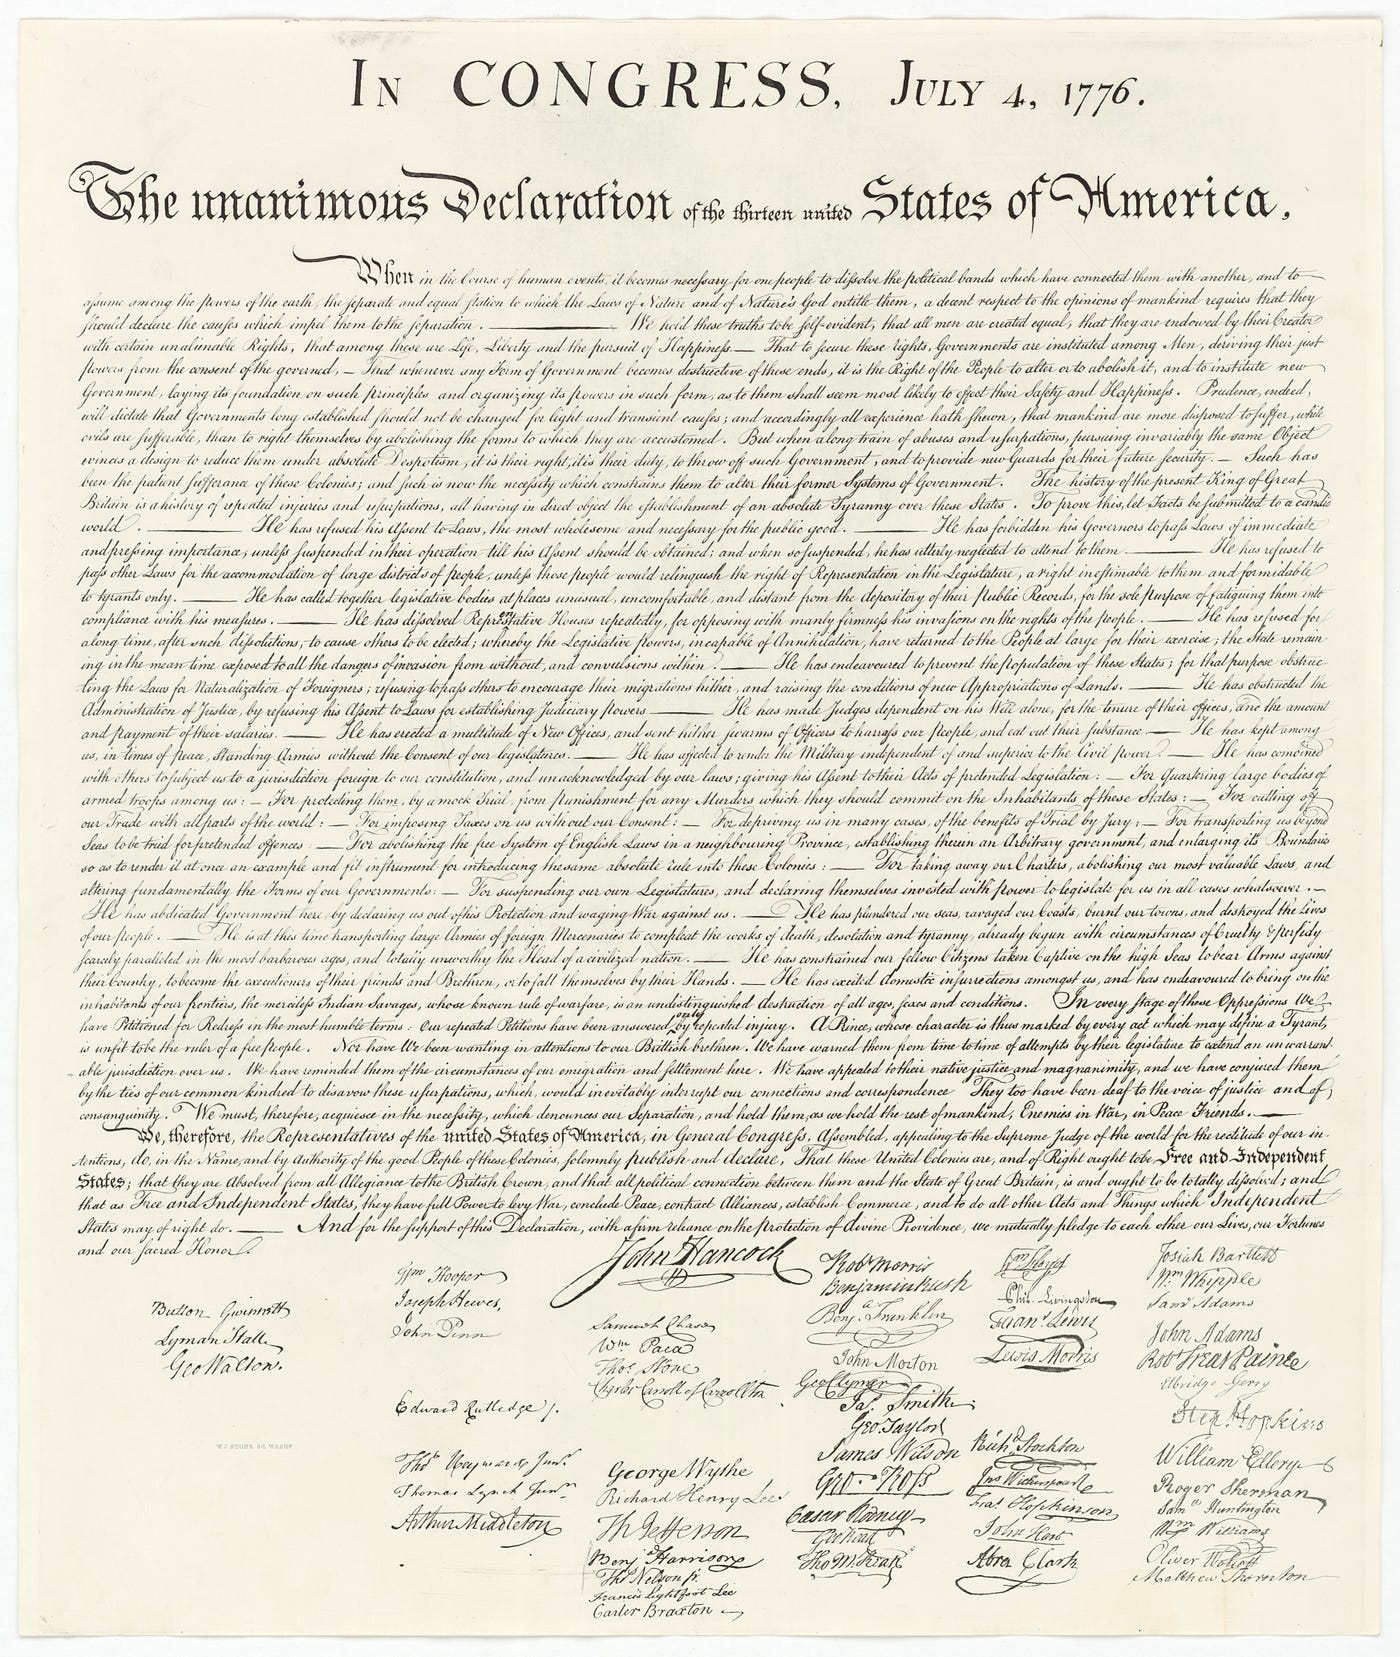 In CONGRESS, July 4, 1776.
The unanimous Declaration of the thirteen united States of America,
When in the Course of human events, it becomes necessary for one people to dissolve the political bands which have connected them with another, and to
assume among the powers of the earth, the separate and equal station to which the Laws of Nature and of Nature's God entitle them, a decent respect to the opinions of mankind requires that they
should declare the causes which impel them to the separation. ——— We hold these truths to be self-evident, that all men are created equal, that they are endowed by their Creator
with certain unalienable Rights, that among these are Life, Liberty and the pursuit of Happiness.— That to secure these rights, Governments are instituted among Men, deriving their just
powers from the consent of the governed,— That whenever any Form of Government becomes destructive of these ends, it is the Right of the People to alter or to abolish it, and to institute new
Government, laying its foundation on such principles and organizing its powers in such form, as to them shall seem most likely to effect their Safety and Happiness. Prudence, indeed,
will dictate that Governments long established should not be changed for light and transient causes; and accordingly all experience hath shewn, that mankind are more disposed to suffer, while
evils are sufferable, than to right themselves by abolishing the forms to which they are accustomed. But when a long train of abuses and usurpations, pursuing invariably the same Object
evinces a design to reduce them under absolute Despotism, it is their right, it is their duty, to throw off such Government, and to provide new Guards for their future security.— Such has
been the patient sufferance of these Colonies; and such is now the necessity which constrains them to alter their former Systems of Government. The history of the present King of Great
Britain is a history of repeated injuries and usurpations, all having in direct object the establishment of an absolute Tyranny over these States. To prove this, let Facts be submitted to a candid
world. ——— He has refused his Assent to Laws, the most wholesome and necessary for the public good. ——— He has forbidden his Governors to pass Laws of immediate
and pressing importance, unless suspended in their operation till his Assent should be obtained; and when so suspended, he has utterly neglected to attend to them. ——— He has refused to
pass other Laws for the accommodation of large districts of people, unless those people would relinquish the right of Representation in the Legislature, a right inestimable to them and formidable
to tyrants only. ——— He has called together legislative bodies at places unusual, uncomfortable, and distant from the depository of their Public Records, for the sole purpose of fatiguing them into
compliance with his measures. ——— He has dissolved Representative Houses repeatedly, for opposing with manly firmness his invasions on the rights of the people. ——— He has refused for
a long time, after such dissolutions, to cause others to be elected; whereby the Legislative powers, incapable of Annihilation, have returned to the People at large for their exercise; the State remain
ing in the mean time exposed to all the dangers of invasion from without, and convulsions within. ——— He has endeavoured to prevent the population of these States; for that purpose obstruc
ting the Laws for Naturalization of Foreigners; refusing to pass others to encourage their migrations hither, and raising the conditions of new Appropriations of Lands. ——— He has obstructed the
Administration of Justice, by refusing his Assent to Laws for establishing Judiciary powers ——— He has made Judges dependent on his Will alone, for the tenure of their offices, and the amount
and payment of their salaries. ——— He has erected a multitude of New Offices, and sent hither swarms of Officers to harrass our People, and eat out their substance. ——— He has kept among
us, in times of peace, Standing Armies without the Consent of our legislatures. ——— He has affected to render the Military independent of and superior to the Civil power. ——— He has combined
with others to subject us to a jurisdiction foreign to our constitution, and unacknowledged by our laws; giving his Assent to their Acts of pretended Legislation: — For quartering large bodies of
armed troops among us: — For protecting them, by a mock Trial, from punishment for any Murders which they should commit on the Inhabitants of these States: — For cutting off
our Trade with all parts of the world: — For imposing Taxes on us without our Consent: — For depriving us in many cases, of the benefits of Trial by Jury: — For transporting us beyond
Seas to be tried for pretended offences — For abolishing the free System of English Laws in a neighbouring Province, establishing therein an Arbitrary government, and enlarging its Boundaries
so as to render it at once an example and fit instrument for introducing the same absolute rule into these Colonies: — For taking away our Charters, abolishing our most valuable Laws, and
altering fundamentally the Forms of our Governments: — For suspending our own Legislatures, and declaring themselves invested with power to legislate for us in all cases whatsoever. —
He has abdicated Government here, by declaring us out of his Protection and waging War against us. ——— He has plundered our seas, ravaged our Coasts, burnt our towns, and destroyed the Lives
of our people. ——— He is at this time transporting large Armies of foreign Mercenaries to compleat the works of death, desolation and tyranny, already begun with circumstances of Cruelty & perfidy
scarcely paralleled in the most barbarous ages, and totally unworthy the Head of a civilized nation. ——— He has constrained our fellow Citizens taken Captive on the high Seas to bear Arms against
their Country, to become the executioners of their friends and Brethren, or to fall themselves by their Hands. ——— He has excited domestic insurrections amongst us, and has endeavoured to bring on the
inhabitants of our frontiers, the merciless Indian Savages, whose known rule of warfare, is an undistinguished destruction of all ages, sexes and conditions. In every stage of these Oppressions We
have Petitioned for Redress in the most humble terms: Our repeated Petitions have been answered only by repeated injury. A Prince, whose character is thus marked by every act which may define a Tyrant,
is unfit to be the ruler of a free people. Nor have We been wanting in attentions to our Brittish brethren. We have warned them from time to time of attempts by their legislature to extend an unwarrant
able jurisdiction over us. We have reminded them of the circumstances of our emigration and settlement here. We have appealed to their native justice and magnanimity, and we have conjured them
by the ties of our common kindred to disavow these usurpations, which, would inevitably interrupt our connections and correspondence They too have been deaf to the voice of justice and of
consanguinity. We must, therefore, acquiesce in the necessity, which denounces our Separation, and hold them, as we hold the rest of mankind, Enemies in War, in Peace Friends. ———
We, therefore, the Representatives of the united States of America, in General Congress, Assembled, appealing to the Supreme Judge of the world for the rectitude of our in-
tentions, do, in the Name, and by Authority of the good People of these Colonies, solemnly publish and declare, That these United Colonies are, and of Right ought to be Free and Independent
States; that they are Absolved from all Allegiance to the British Crown, and that all political connection between them and the State of Great Britain, is and ought to be totally dissolved; and
that as Free and Independent States, they have full Power to levy War, conclude Peace, contract Alliances, establish Commerce, and to do all other Acts and Things which Independent
States may of right do. ——— And for the support of this Declaration, with a firm reliance on the protection of divine Providence, we mutually pledge to each other our Lives, our Fortunes
and our sacred Honor.
Button Gwinnett
Lyman Hall
Geo Walton.
Wm Hooper
Joseph Hewes,
John Penn
Edward Rutledge /.
Thos Heyward Junr.
Thomas Lynch Junr.
Arthur Middleton
John Hancock
Samuel Chase
Wm Paca
Thos Stone
Charles Carroll of Carrollton
George Wythe
Richard Henry Lee
Th Jefferson
Benj Harrison
Thos Nelson jr.
Francis Lightfoot Lee
Carter Braxton
Robt Morris
Benjamin Rush
Benj. Franklin
John Morton
Geo Clymer
Jas. Smith
Geo. Taylor
James Wilson
Geo. Ross
Caesar Rodney
Geo Read
Tho M:Kean
Wm Floyd
Phil. Livingston
Frans. Lewis
Lewis Morris
Richd. Stockton
Jno Witherspoon
Fras. Hopkinson
John Hart
Abra Clark
Josiah Bartlett
Wm Whipple
Saml Adams
John Adams
Robt Treat Paine
Elbridge Gerry
Step. Hopkins
William Ellery
Roger Sherman
Saml Huntington
Wm Williams
Oliver Wolcott
Matthew Thornton
W. J. STONE SC. WASHN.